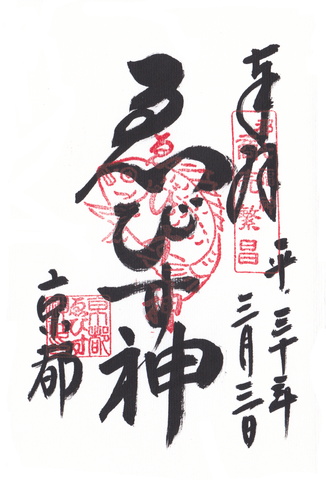 奉拝
商売繁昌
平三十年
三月三日
ゑびす神
京都
京都
ゑびす